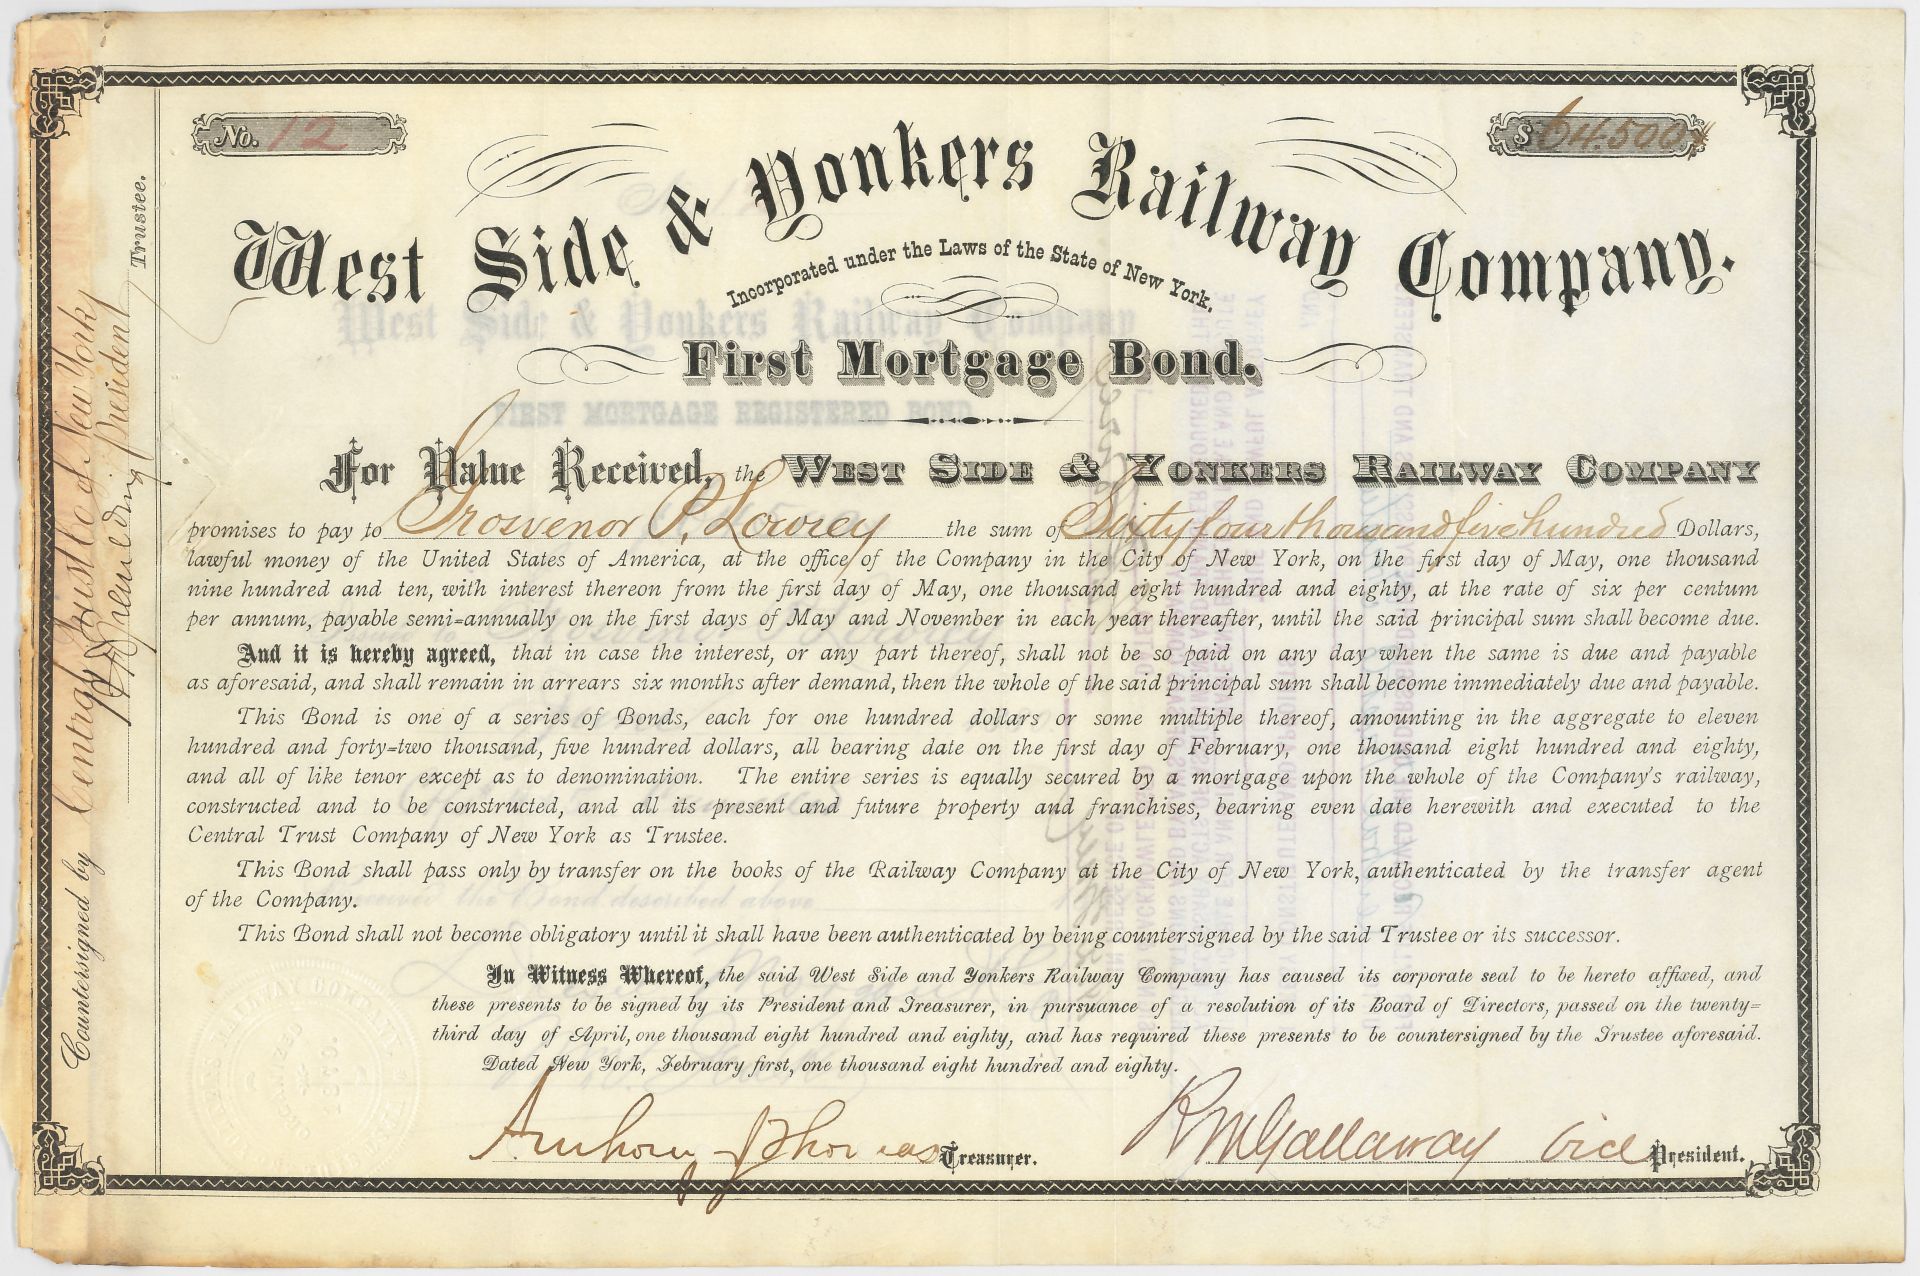 No. 12
$ 64.500
West Side & Yonkers Railway Company.
Incorporated under the Laws of the State of New York.
First Mortgage Bond.
For Value Received, the WEST SIDE & YONKERS RAILWAY COMPANY
promises to pay to Grosvenor P. Lowrey the sum of Sixty four thousand five hundred Dollars,
lawful money of the United States of America, at the office of the Company in the City of New York, on the first day of May, one thousand
nine hundred and ten, with interest thereon from the first day of May, one thousand eight hundred and eighty, at the rate of six per centum
per annum, payable semi=annually on the first days of May and November in each year thereafter, until the said principal sum shall become due.
And it is hereby agreed, that in case the interest, or any part thereof, shall not be so paid on any day when the same is due and payable
as aforesaid, and shall remain in arrears six months after demand, then the whole of the said principal sum shall become immediately due and payable.
This Bond is one of a series of Bonds, each for one hundred dollars or some multiple thereof, amounting in the aggregate to eleven
hundred and forty=two thousand, five hundred dollars, all bearing date on the first day of February, one thousand eight hundred and eighty,
and all of like tenor except as to denomination. The entire series is equally secured by a mortgage upon the whole of the Company's railway,
constructed and to be constructed, and all its present and future property and franchises, bearing even date herewith and executed to the
Central Trust Company of New York as Trustee.
This Bond shall pass only by transfer on the books of the Railway Company at the City of New York, authenticated by the transfer agent
of the Company.
This Bond shall not become obligatory until it shall have been authenticated by being countersigned by the said Trustee or its successor.
In Witness Whereof, the said West Side and Yonkers Railway Company has caused its corporate seal to be hereto affixed, and
these presents to be signed by its President and Treasurer, in pursuance of a resolution of its Board of Directors, passed on the twenty=
third day of April, one thousand eight hundred and eighty, and has required these presents to be countersigned by the Trustee aforesaid.
Dated New York, February first, one thousand eight hundred and eighty.
Anthony J Thomas Treasurer.
R M Gallaway Vice President.
Countersigned by Central Trust Co of New York
President
Trustee.